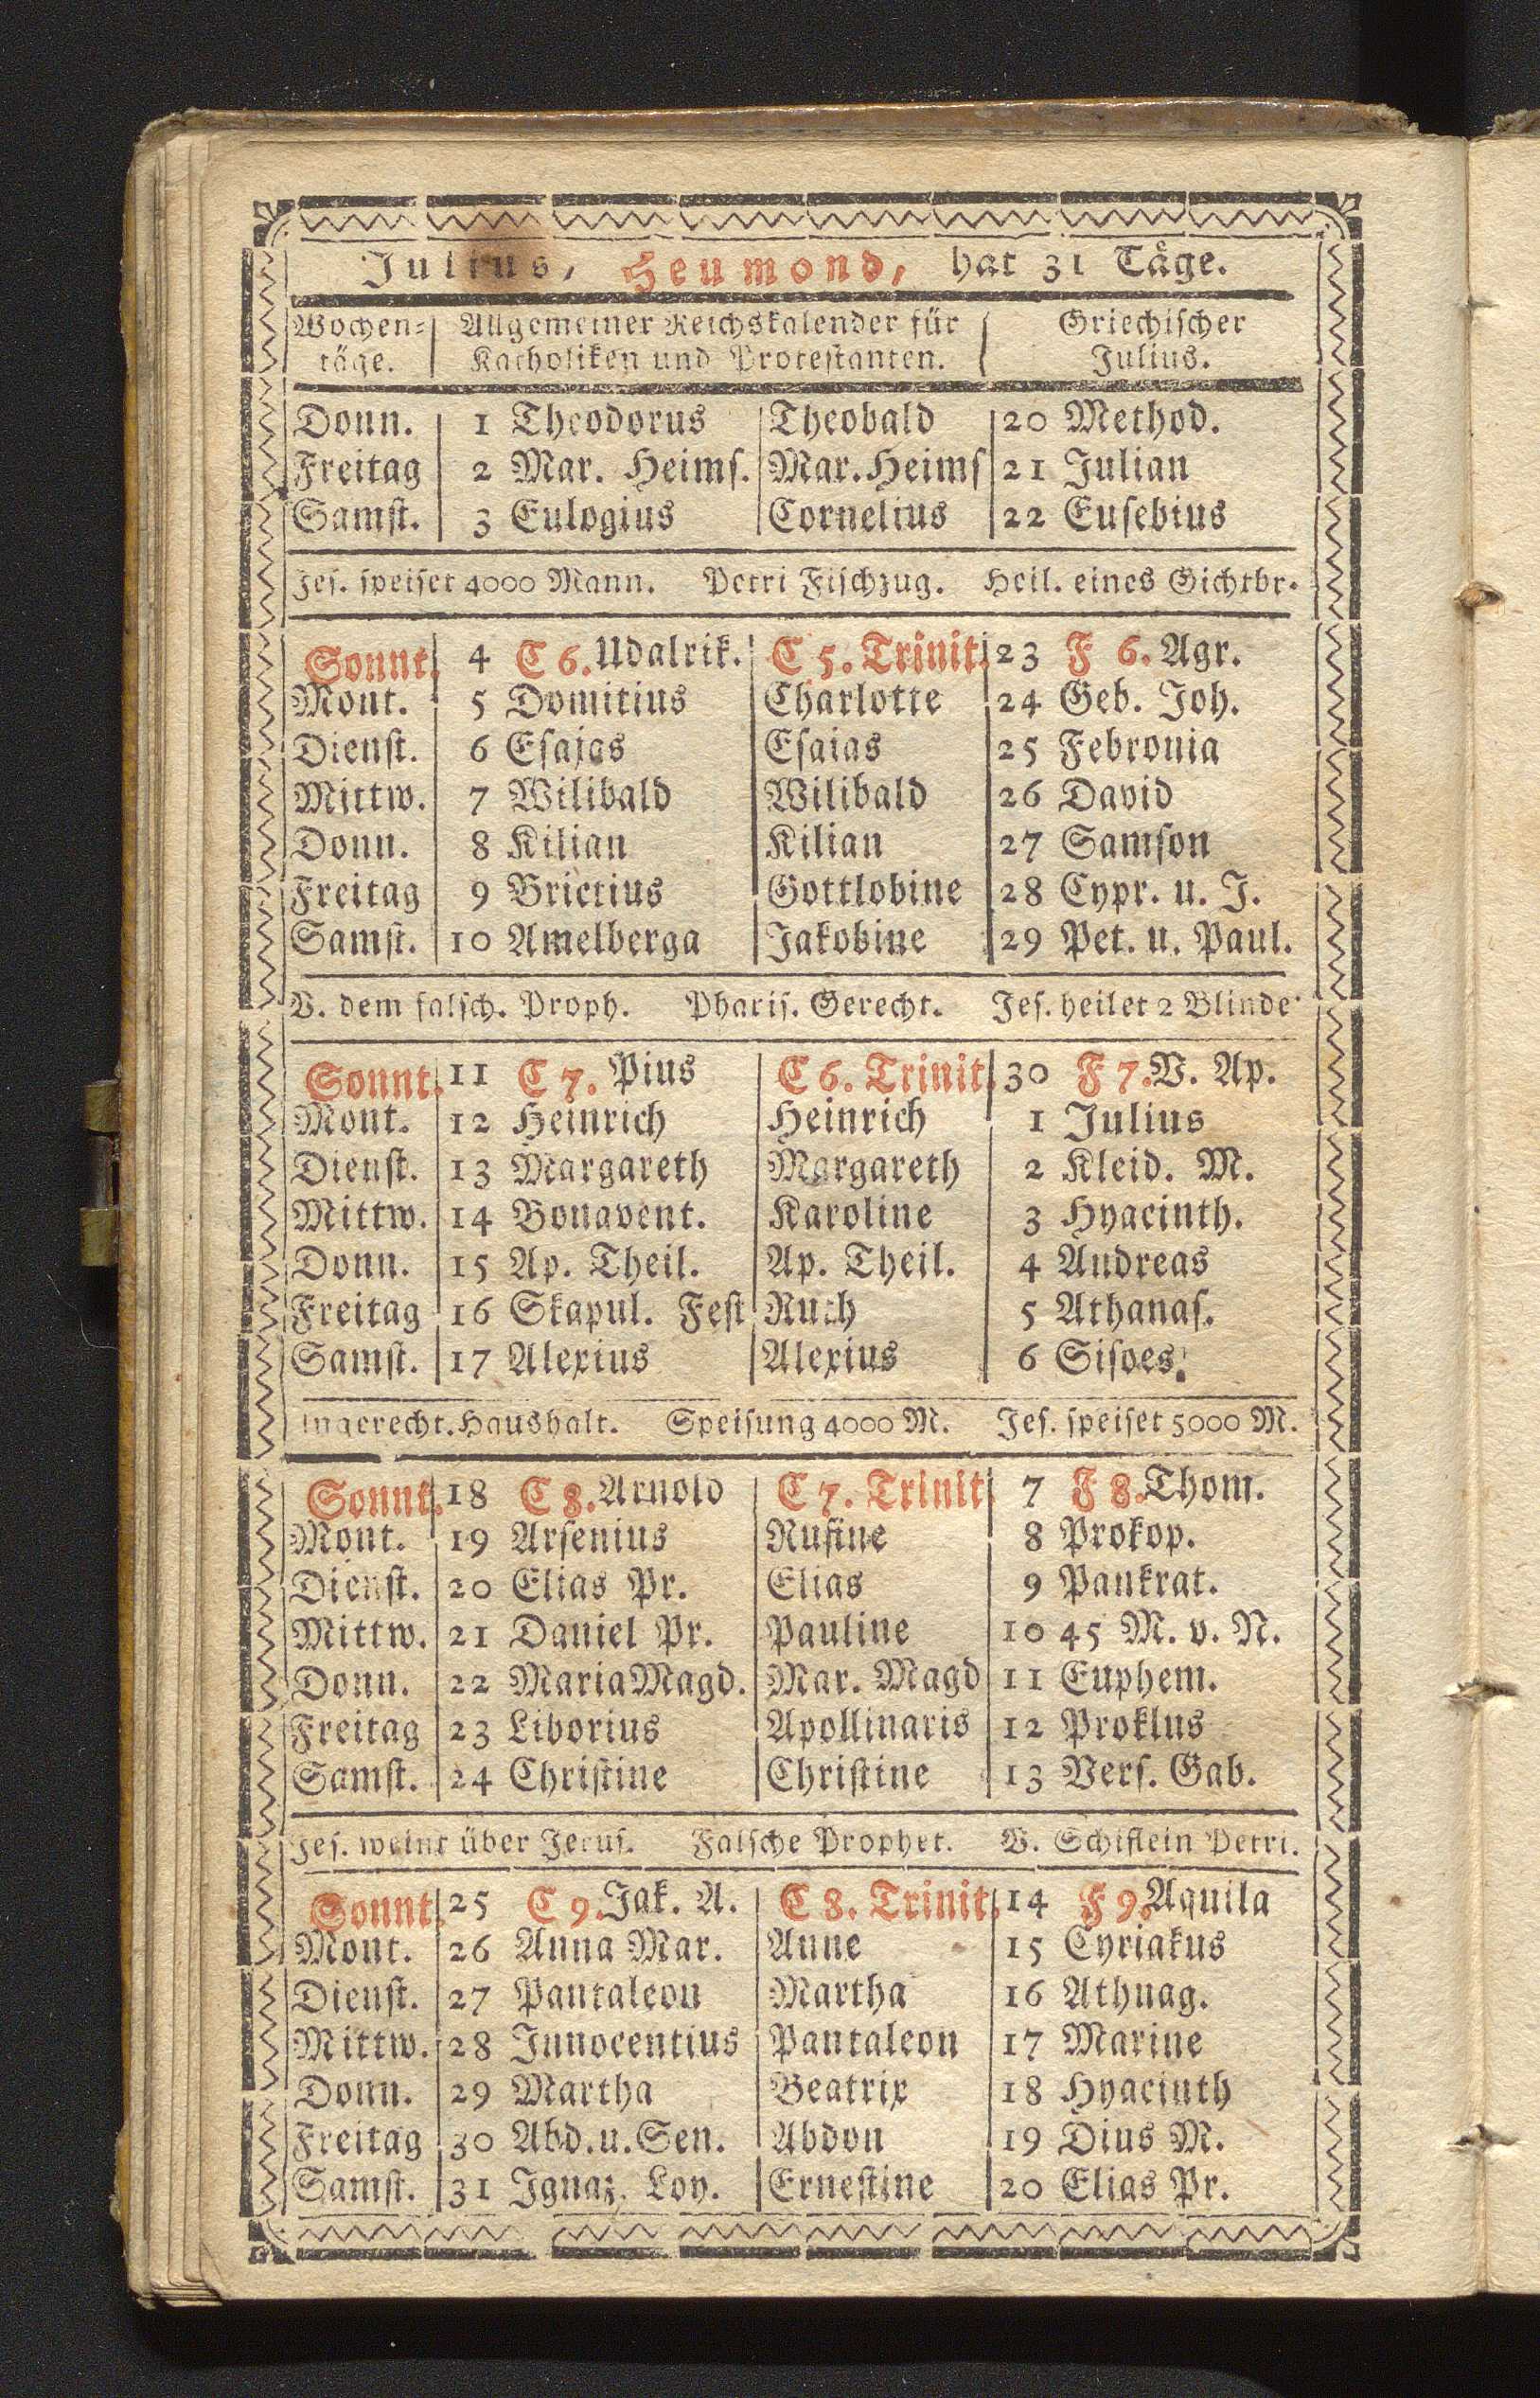 Julius, Heumond, hat 31 Täge.
Wochen= Allgemeiner Reichskalender für Griechischer
täge. Katholiken und Protestanten. Julius.
Donn. 1 Theodorus Theobald 20 Method.
Freitag 2 Mar. Heims. Mar. Heims 21 Julian
Samst. 3 Eulogius Cornelius 22 Eusebius
Jes. speiset 4000 Mann. Petri Fischzug. Heil. eines Gichtbr.
Sonnt. 4 C 6. Udalrik. C 5. Trinit. 23 F 6. Agr.
Mont. 5 Domitius Charlotte 24 Geb. Joh.
Dienst. 6 Esajas Esaias 25 Febronia
Mittw. 7 Wilibald Wilibald 26 David
Donn. 8 Kilian Kilian 27 Samson
Freitag 9 Brictius Gottlobine 28 Cypr. u. J.
Samst. 10 Amelberga Jakobine 29 Pet. u. Paul.
V. dem falsch. Proph. Pharis. Gerecht. Jes. heilet 2 Blinde
Sonnt. 11 C 7. Pius C 6. Trinit. 30 F 7. V. Ap.
Mont. 12 Heinrich Heinrich 1 Julius
Dienst. 13 Margareth Margareth 2 Kleid. M.
Mittw. 14 Bonavent. Karoline 3 Hyacinth.
Donn. 15 Ap. Theil. Ap. Theil. 4 Andreas
Freitag 16 Skapul. Fest Ruth 5 Athanas.
Samst. 17 Alexius Alexius 6 Sisoes.
ngerecht. Haushalt. Speisung 4000 M. Jes. speiset 5000 M.
Sonnt. 18 C 8. Arnold C 7. Trinit. 7 F 8. Thom.
Mont. 19 Arsenius Rufine 8 Prokop.
Dienst. 20 Elias Pr. Elias 9 Pankrat.
Mittw. 21 Daniel Pr. Pauline 10 45 M. v. N.
Donn. 22 Maria Magd. Mar. Magd 11 Euphem.
Freitag 23 Liborius Apollinaris 12 Proklus
Samst. 24 Christine Christine 13 Vers. Gab.
Jes. weint über Jerus. Falsche Prophet. V. Schiflein Petri.
Sonnt. 25 C 9. Jak. A. C 8. Trinit. 14 F 9. Aquila
Mont. 26 Anna Mar. Anne 15 Cyriakus
Dienst. 27 Pantaleon Martha 16 Athnag.
Mittw. 28 Innocentius Pantaleon 17 Marine
Donn. 29 Martha Beatrix 18 Hyacinth
Freitag 30 Abd. u. Sen. Abdon 19 Dius M.
Samst. 31 Ignaz. Loy. Ernestine 20 Elias Pr.